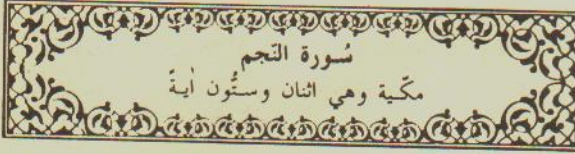 سُورة النّجم
مكّية وهي اثنان وستُّون اٰيةً